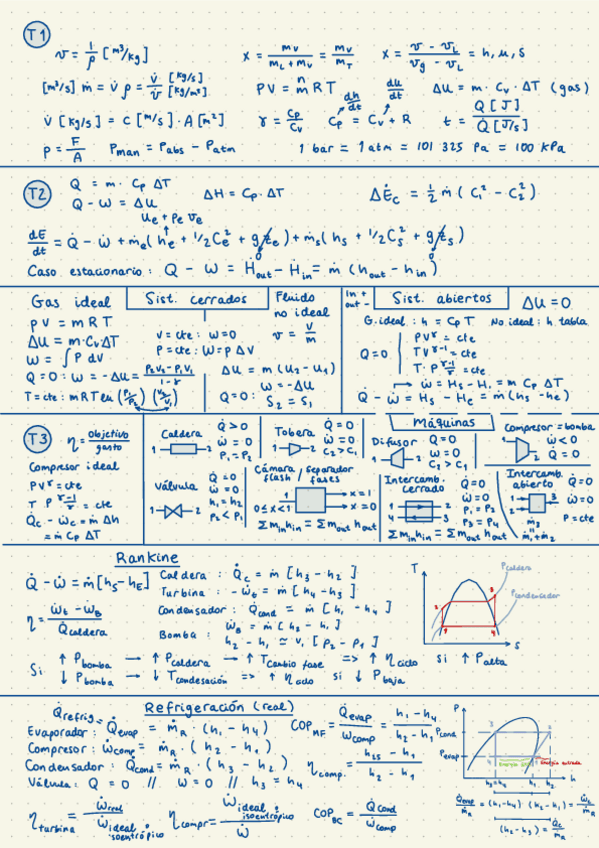 T1
v = 1/ρ [m³/kg]
x = mv/(mL + mv) = mv/mT
x = (v - vL)/(vg - vL) = h, u, s
[m³/s] ṁ = v̇ ρ = V̇/v [kg/s] [kg/m²]
PV = n/m RT
dh/dt
du/dt
ΔU = m · Cv · ΔT (gas)
V̇ [kg/s] = C [m/s] · A [m²]
γ = Cp/Cv
Cp = Cv + R
t = Q [J] / Q̇ [J/s]
p = F/A
Pman = Pabs - Patm
1 bar = 1 atm = 101 325 Pa = 100 kPa
T2
Q = m · Cp ΔT
Q - W = ΔU
ΔH = Cp · ΔT
ΔĖc = 1/2 ṁ (C₁² - C₂²)
ue + Pe ve
dE/dt = Q̇ - Ẇ + ṁe (he + 1/2 Ce² + g ze) + ṁs (hs + 1/2 Cs² + g zs)
0 0
Caso estacionario: Q - W = Ḣout - Ḣin = ṁ (hout - hin)
Gas ideal
PV = mRT
ΔU = m · Cv ΔT
W = ∫ P dV
Q = 0 : W = -ΔU = (P₂V₂ - P₁V₁)/(1 - γ)
T = cte : mRT ln (P₁/P₂) (V₂/V₁)
Sist. cerrados
V = cte : W = 0
P = cte : W = P ΔV
Fluido no ideal
v = V/m
ΔU = m (u₂ - u₁)
Q = 0 :
W = -ΔU
S₂ = S₁
In +
out -
Sist. abiertos
ΔU = 0
G. ideal : h = Cp T
No ideal : h tabla
Q = 0
PVγ = cte
TVγ-1 = cte
T · P (γ-1)/γ = cte
Ẇ = Hs - H₁ = m Cp ΔT
Q̇ - Ẇ = Hs - He = ṁ (hs - he)
T3
η = objetivo/gasto
Compresor ideal
PVγ = cte
T P (γ-1)/γ = cte
Q̇c - Ẇc = ṁ Δh
= ṁ Cp ΔT
Caldera
1 2
Q̇ > 0
Ẇ = 0
P₁ = P₂
Tobera
1 2
Q̇ = 0
Ẇ = 0
C₂ > C₁
Máquinas
Difusor
1 2
Q̇ = 0
Ẇ = 0
C₂ > C₁
Compresor = bomba
1 2
Ẇ < 0
Q̇ = 0
Válvula
1 2
Q̇ = 0
Ẇ = 0
h₁ = h₂
P₂ < P₁
Cámara flash / Separador fases
0 ≤ x < 1
x = 1
x = 0
Σ ṁin hin = Σ ṁout hout
Intercamb. cerrado
1 2
4 3
Q̇ = 0
Ẇ = 0
P₁ = P₂
P₃ = P₄
Σ ṁin hin = Σ ṁout hout
Intercamb. abierto
1 2 3
Q̇ = 0
Ẇ = 0
P = cte
ṁ₃ = ṁ₁ + ṁ₂
Rankine
Q̇ - Ẇ = ṁ [hs - hE]
η = (Ẇt - ẆB)/Q̇caldera
Caldera : Q̇c = ṁ [h₃ - h₂]
Turbina : -Ẇt = ṁ [h₄ - h₃]
Condensador : Q̇cond = ṁ [h₁ - h₄]
Bomba : ẆB = ṁ [h₂ - h₁]
h₂ - h₁ ≃ v₁ [P₂ - P₁]
T
Pcaldera
Pcondensador
1 2 3 4
s
Si ↑ Pbomba → ↑ Pcaldera → ↑ Tcambio fase => ↑ ηciclo si ↑ Palta
↓ Pbomba → ↓ Tcondesación => ↑ ηciclo si ↓ Pbaja
Refrigeración (real)
Q̇refrig =
Evaporador : Q̇evap = ṁR · (h₁ - h₄)
Compresor : Ẇcomp = ṁR · (h₂ - h₁)
Condensador : Q̇cond = ṁR · (h₃ - h₂)
Válvula : Q = 0 // W = 0 // h₃ = h₄
COPMF = Q̇evap/Ẇcomp = (h₁ - h₄)/(h₂ - h₁)
ηcomp. = (h2s - h₁)/(h₂ - h₁)
P
Pcond
Pevap
h₃=h₄ h₁ h₂ h
Q̇evap/ṁR = (h₁-h₄) (h₂-h₁) = Ẇc/ṁR
(h₂-h₃) = Q̇c/ṁR
ηturbina = Ẇreal/Ẇideal isoentrópico
ηcompr = Ẇideal isoentrópico/Ẇ
COPBC = Q̇cond/Ẇcomp